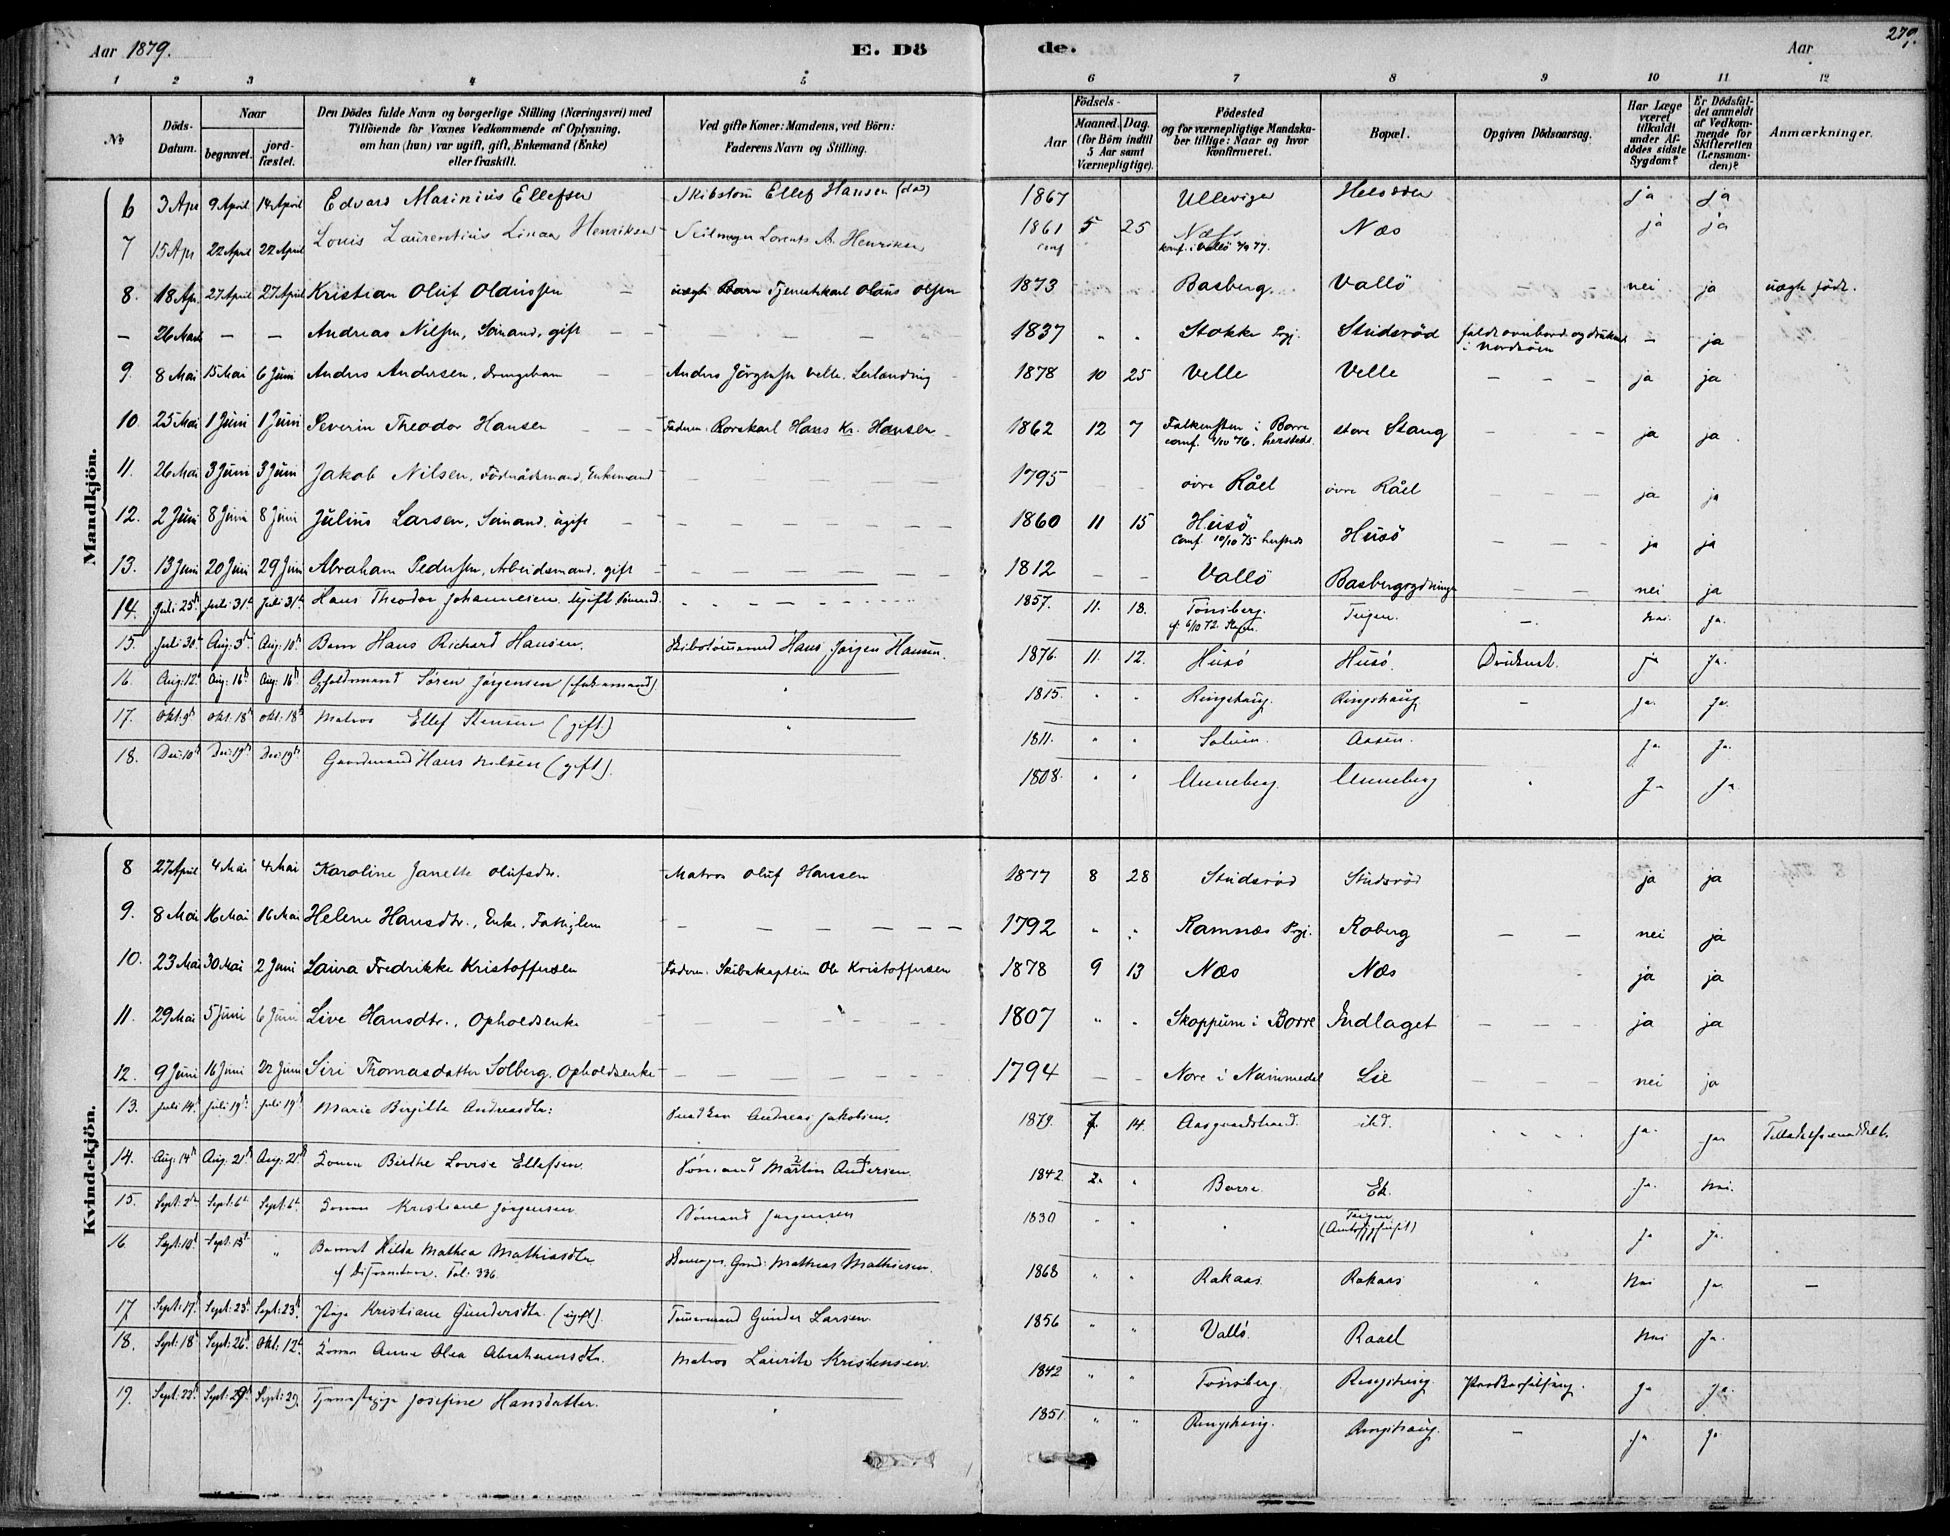 Aar 1879. E. Dö de. Aar 279.
1 2 3 4 5 6 7 8 9 10 11 12
No
Döds-Datum.
Naar
begravet. jord-fæstet.
Den Dödes fulde Navn og borgerlige Stilling (Næringsvei) med
Tilföiende for Voxnes Vedkommende af Oplysning,
om han (hun) var ugift, gift, Enkemand (Enke)
eller fraskilt.
Ved gifte Koner: Mandens, ved Börn:
Faderens Navn og Stilling.
Födsels-
Aar Maaned. Dag.
(for Börn indtil
5 Aar samt
Værnepligtige).
Födested
og for værnepligtige Mandska-
ber tillige: Naar og hvor
konfirmeret.
Bopæl.
Opgiven Dödsaarsag.
Har Læge
været
tilkaldt
under Af-
dödes sidste
Sygdom?
Er Dödsfal-
det anmeldt
af Vedkom-
mende for
Skifteretten
(Lensman-
den)?
Anmærkninger.
Mandkjön.
6 3 Apr 9 April 14 April Edvard Marinius Ellefsen Skibstöm Ellef Hansen (död) 1867 Ullevigen ja ja
7 15 Apr 22 April 22 April Louis Laurentius Linaa Henriksen Seilmager Lorents A. Henriksen 1861 5 25 Næs Næs ja ja
conf konf. i Vallö 77.
8. 18 Apr 27 April 27 April Kristian Oluf Olaussen uægte Barn Tjenestekarl Olaus Olsen 1873 Basberg. Vallö nei ja uægte födt.
— 26 Marts — — Andreas Nilsen, Sömand, gift — — 1837 " " Stokke Prgj. Studsröd faldt overbord og druknet i Nordsöen — ja
9. 8 Mai 15 Mai 6 Juni Anders Andersen, Drengebarn — — Anders Jörgensen Velle, Leilænding 1878 10 25 Velle Velle — — — ja ja
10. 25 Mai 1 Juni 1 Juni Severin Theodor Hansen — — — Faderen Rorskarl Hans Kr. Hansen 1862 12 7 Falkensten i Borre store Stang — — — ja ja
conf. 1/10 76. hersteds.
11. 26 Mai 3 Juni 3 Juni Jakob Nilsen, Föderaadsmand, Enkemand — — — 1795 — — övre Råel övre Råel — — — ja ja
12. 2 Juni 8 Juni 8 Juni Julius Larsen, Sömand, ugift — — — 1860 11 15 Husö Husö — — — ja ja
Conf. 10/10 75 hersteds
13. 13 Juni 20 Juni 29 Juni Abraham Pedersen, Arbeidsmand, gift — — — 1812 — — Vallö Basbergrydningen — — nei ja
14. Juli 25d Juli 31t Juli 31t Hans Theodor Johannesen Ugift Sömand. 1857. 11. 18. Tönsberg. Teigen. — Nei. Ja.
cf. 6/10 72.
15. Juli 30t Aug: 3d Aug: 10d Barn Hans Richard Hansen. Skibstömmermand Hans Jørgen Hansen. 1876. 11. 12. Husö Husö. Druknet. ja Ja.
16. Aug: 12t Aug: 16d Aug 16d Opholdsmand Sören Jörgensen (Enkemand) " 1815. " " Ringshaug. Ringshaug — ja. Ja.
17. Okt: 9d Okt. 18d Okt: 18d Matros Ellef Stensen (gift) " 1811. " " Solum. Aasen. Ja. Ja.
18. Dec: 10d Dec: 19d Dec: 19d Gaardmand Hans Nilsen (gift). 1808. " " Unneberg. Unneberg " Ja Ja
Kvindekjön.
8 27 April 4 Mai 4 Mai Karoline Janette Olufsdtr. Matros Oluf Hansen 1877 8 28 Studsröd Studsröd ja ja
9. 8 Mai 16 Mai 16 Mai Helene Hansdtr., Enke, Fattiglem — — — 1792 " " Ramnæs Prgj. Roberg — — nei ja
10. 23 Mai 30 Mai 2 Juni Laura Fredrikke Kristoffersen Faderen Skibskaptein Ole Kristoffersen 1878 9 13 Næs Næs ja ja
11. 29 Mai 5 Juni 6 Juni Live Hansdtr., Opholdsenke — — — 1807 " " Skoppum i Borre Indlaget — — — ja ja
12. 9 Juni 16 Juni 22 Juni Siri Thomasdatter Solberg, Opholdsenke — — — 1794 — — Nore i Numedal Lie nei ja
13. Juli 14d Juli 19d Juli 19d Marie Birgitte Andreasdtr: Andreas Jakobsen. 1879. 7. 14. Aasgaardstrand. ibd. " " " " Ja. ja.
14. Aug: 14d Aug. 21d Aug: 21d Konen Birthe Lovise Ellefsen. Sömand Martin Andersen. 1842. 2. " Borre Ek. " Ja. Nei.
15. Sept: 2d Sept: 6t Sept. 6t Konen Kristiane Jörgensen Sömand Jørgensen 1830 " " " Teigen " ja Ja.
16. Sept: 10d Sept. 15d " Barnet Hilda Mathea Mathiasdtr Gaard: Mathias Mathiesen. 1868 " " Rakaas. Rakaas " Nei Ja. —
Fol: 336.
17 Sept: 17d Sept: 23d Sept. 23d Pige Kristiane Gundersdtr. (ugift). Tömmermand Gunder Larsen. 1856 " " Vallö. Raael Nei Ja.
18. Sept: 18d Sept: 26d Okt: 12t Konen Anne Olea Abrahamsdtr. Matros Laurits Kristensen. 1842 " " Tönsberg. Ringshaug Ja Ja.
19. Sept: 22d Sept: 29d Sept: 29 Tjenestepige Josefine Hansdatter. " 1851. " " Ringshaug. Ringshaug. — Ja Ja